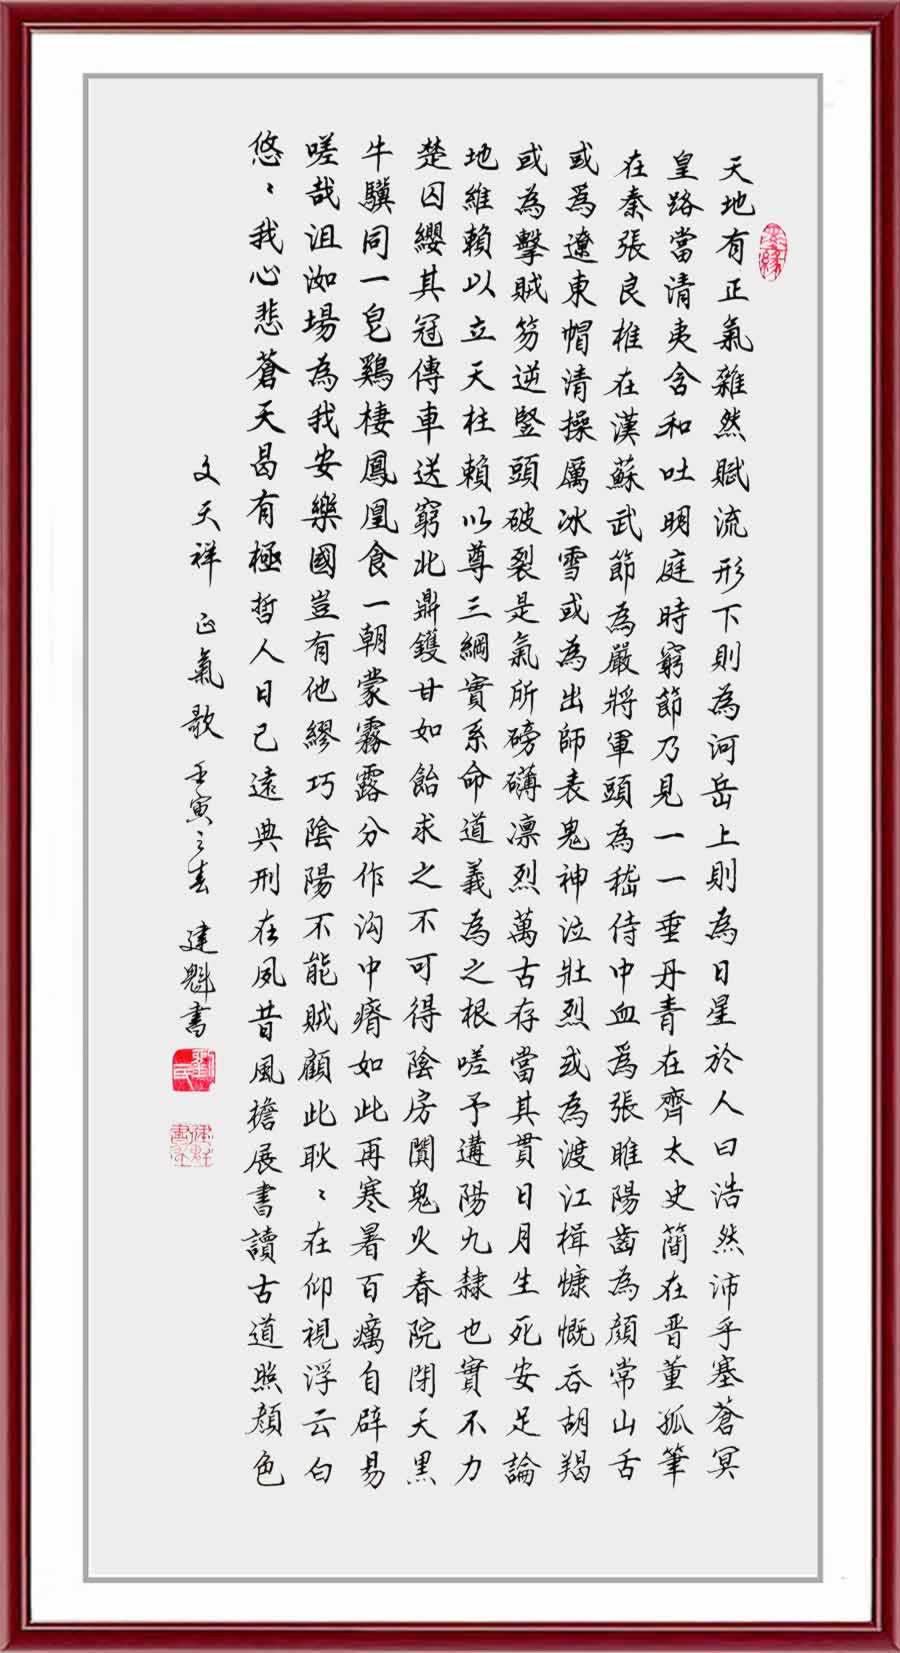 墨緣
天地有正氣雜然賦流形下則為河岳上則為日星於人曰浩然沛乎塞蒼冥
皇路當清夷含和吐明庭時窮節乃見一一垂丹青在齊太史簡在晋董孤筆
在秦張良椎在漢蘇武節為嚴將軍頭為嵇侍中血爲張睢陽齒為顏常山舌
或爲遼東帽清操厲冰雪或為出師表鬼神泣壯烈或為渡江楫慷慨吞胡羯
或為擊賊笏逆豎頭破裂是氣所磅礴凛烈萬古存當其貫日月生死安足論
地維賴以立天柱賴以尊三綱實系命道義為之根嗟予遘陽九隸也實不力
楚囚纓其冠傳車送窮北鼎鑊甘如飴求之不可得陰房闃鬼火春院閉天黑
牛驥同一皂鷄棲鳳凰食一朝蒙霧露分作沟中瘠如此再寒暑百癘自辟易
嗟哉沮洳場為我安樂國豈有他繆巧陰陽不能賊顧此耿〻在仰視浮云白
悠〻我心悲蒼天曷有極哲人日已遠典刑在夙昔風檐展書讀古道照顏色
文天祥 正氣歌 壬寅之春 建魁書
劉氏